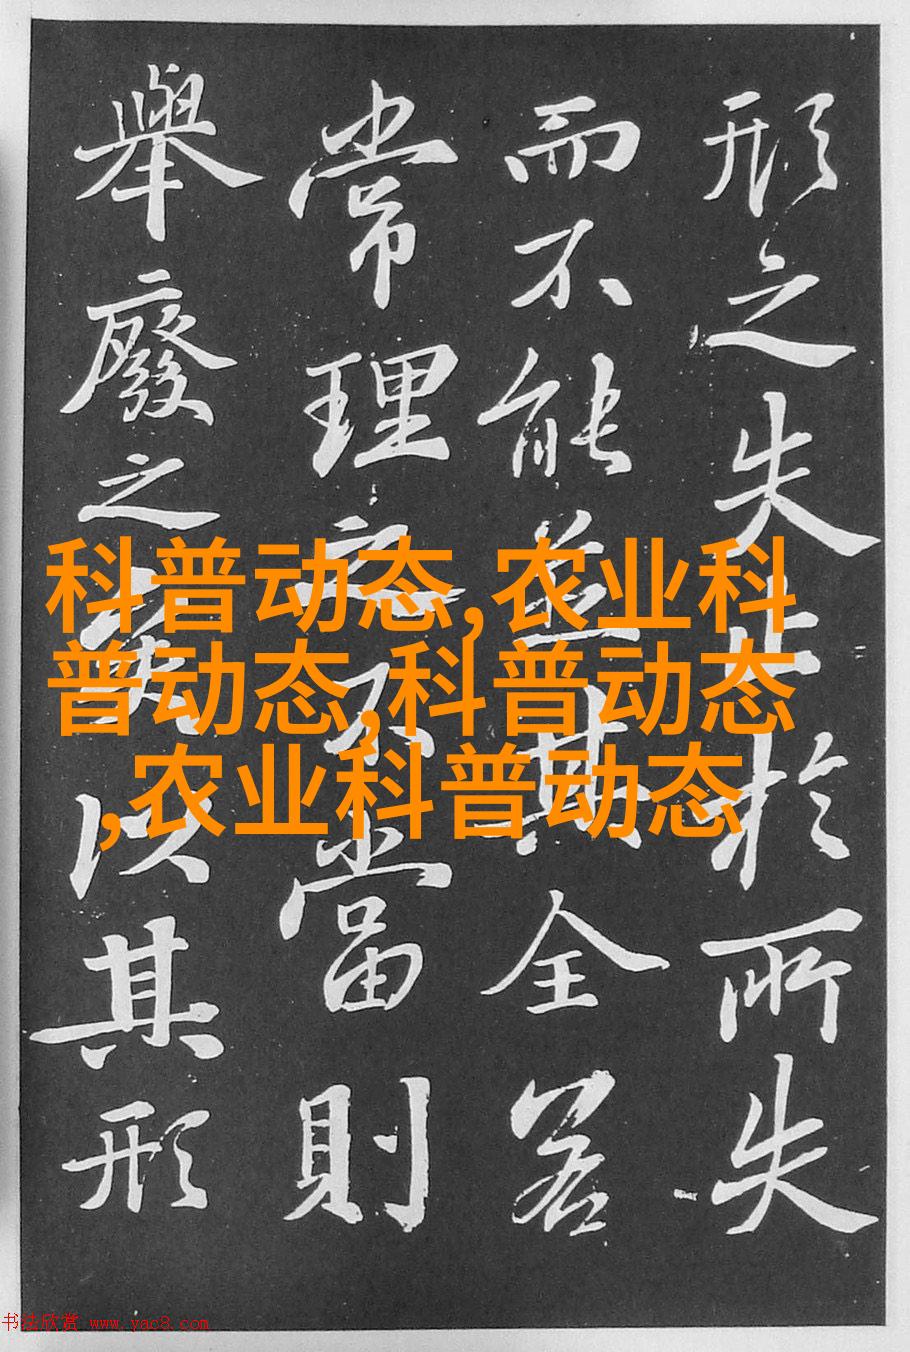 形之失止於所失
而不能其全若
常理之不當則
舉廢之矣以其形
科普动态,农业科
普动态,科普动态
,农业科普动态
书法欣赏 www.yac8.com